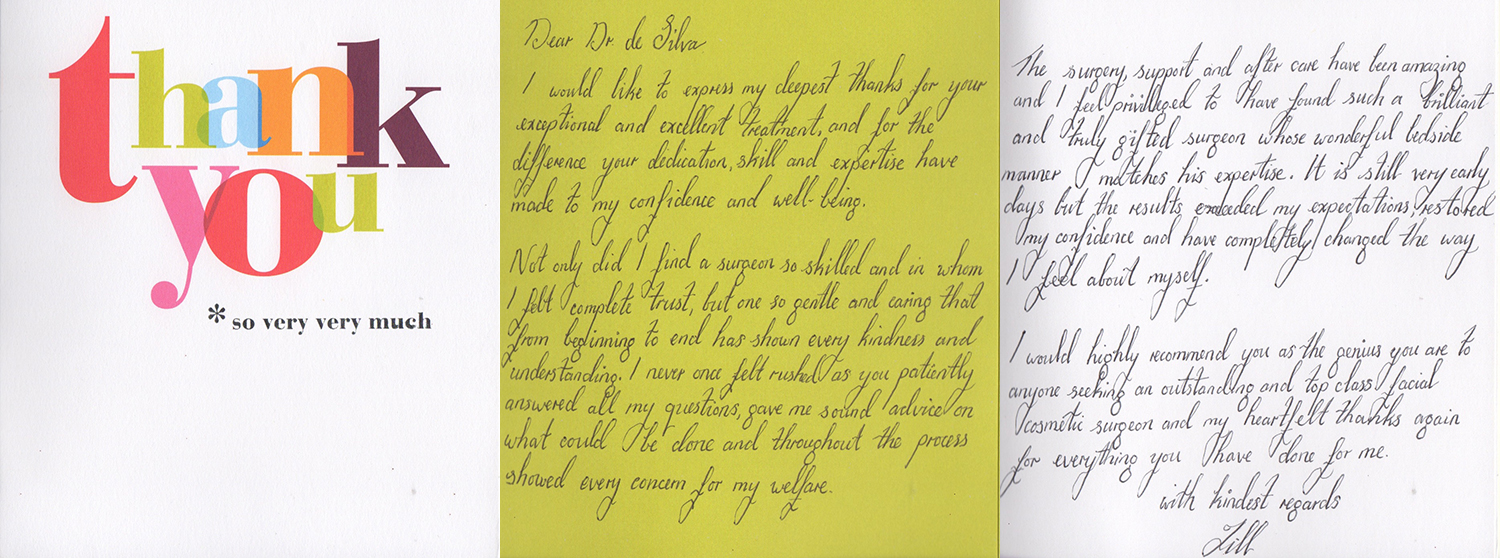 thank
you
*so very very much
Dear Dr. de Silva
I would like to express my deepest thanks for your
exceptional and excellent treatment, and for the
difference your dedication, skill and expertise have
made to my confidence and well-being.
Not only did I find a surgeon so skilled and in whom
I felt complete trust, but one so gentle and caring that
from beginning to end has shown every kindness and
understanding. I never once felt rushed as you patiently
answered all my questions, gave me sound advice on
what could be done and throughout the process
showed every concern for my welfare.
The surgery, support and after care have been amazing
and I feel privilleged to have found such a brilliant
and truly gifted surgeon whose wonderful bedside
manner matches his expertise. It is still very early
days but the results exceeded my expectations, restored
my confidence and have completely changed the way
I feel about myself.
I would highly recommend you as the genius you are to
anyone seeking an outstanding and top class facial
cosmetic surgeon and my heartfelt thanks again
for everything you have done for me.
with kindest regards
Jill